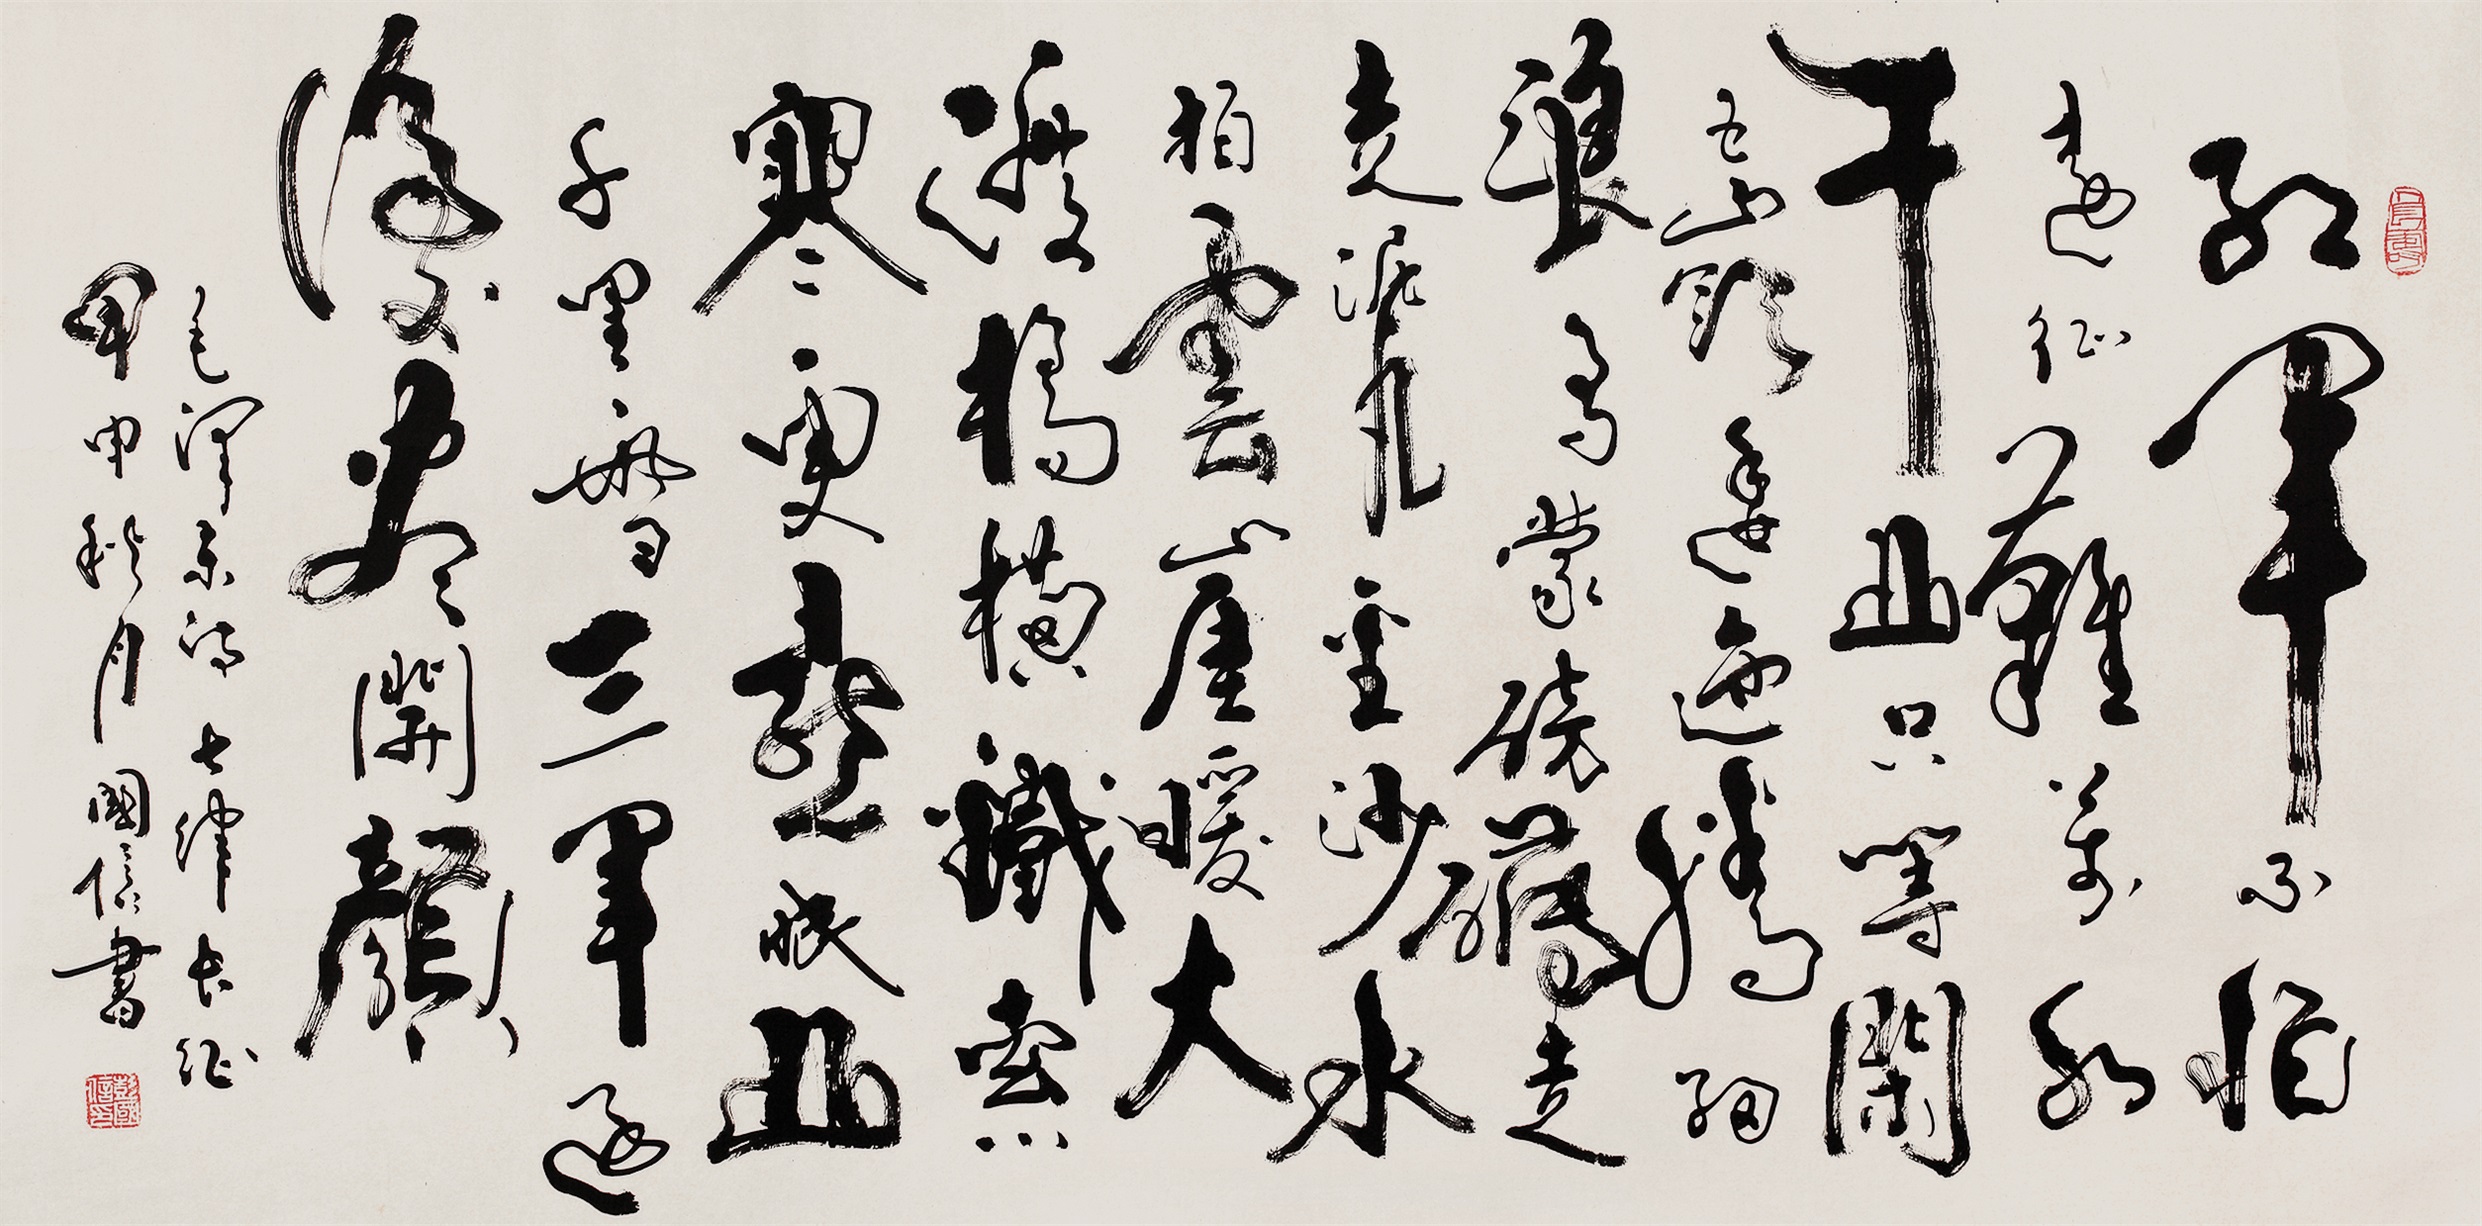 紅軍不怕
遠征難萬水
千山只等閑
五嶺逶迤騰細
浪烏蒙磅礴走
走泥丸金沙水
拍雲崖暖大
渡橋橫鐵索
寒更喜岷山
千里雪三軍過
後盡開顏
毛澤東詩七律長征
甲申秋月國信書
彭國信印